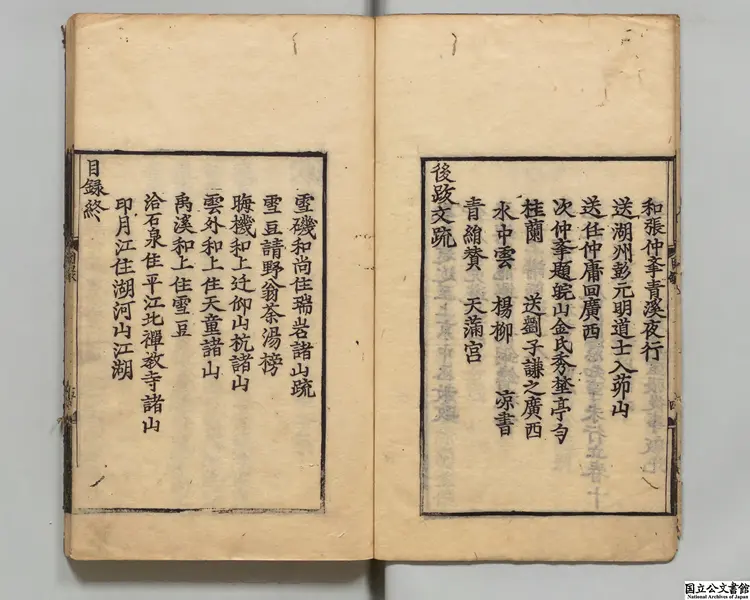 和張仲峯青溪夜行
送湖州彭元明道士入茆山
送任仲庸回廣西
次仲峯題皖山金氏秀埜亭勻
桂蘭 送劉子謙之廣西
水中雲 楊柳 凉書
青綿贊 天滿宮
後跋文疏
雪磯和尚住瑞岩諸山疏
雪豆請野翁茶湯榜
晦機和上迁仰山杭諸山
雲外和上住天童諸山
禹溪和上住雪豆
洽石泉住平江北禪教寺諸山
印月江住湖河山江湖
目録終
国立公文書館
National Archives of Japan